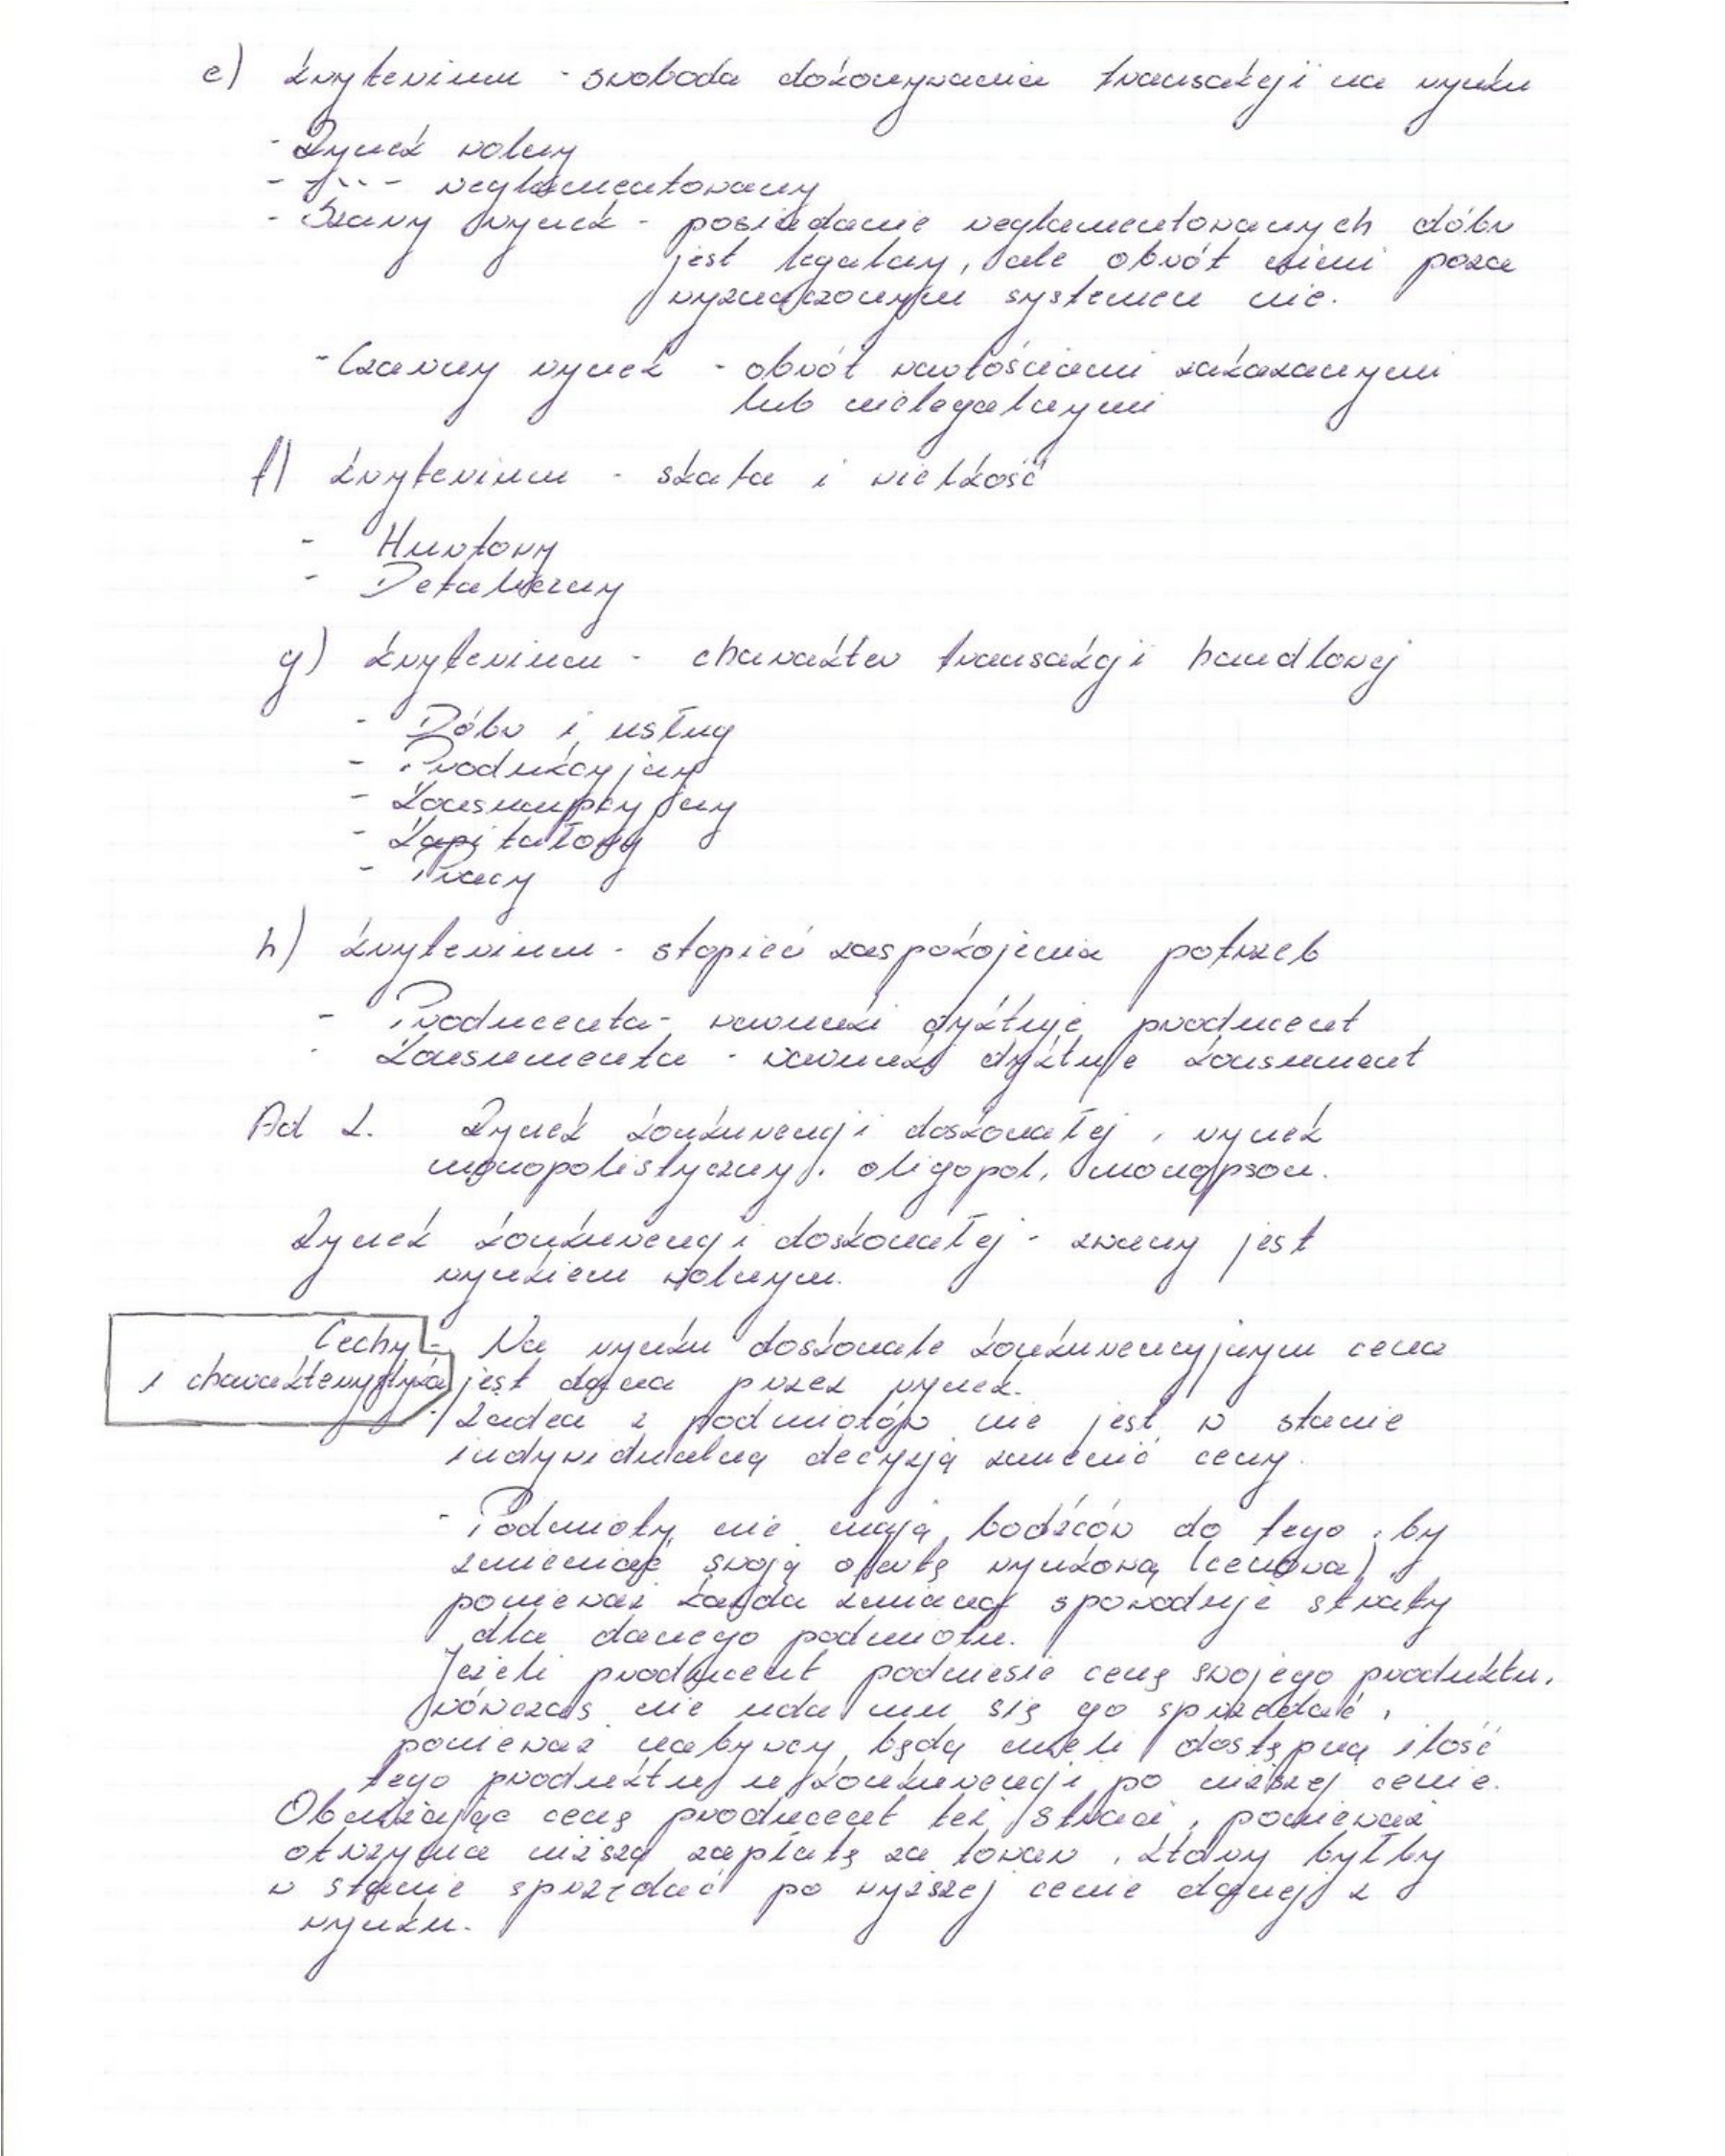 e) kryterium - swoboda dokonywania transakcji na rynku
- Rynek wolny
- -〃- reglamentowany
- Szary rynek - posiadanie reglamentowanych dóbr
jest legalny, ale obrót nimi poza
wyznaczonym systemem nie.
- Czarny rynek - obrót wartościami zakazanymi
lub nielegalnymi
f) kryterium - skala i wielkość
- Hurtowy
- Detaliczny
g) kryterium - charakter transakcji handlowej
- Dóbr i usług
- Produkcyjny
- Konsumpcyjny
- Kapitałowy
- Pracy
h) kryterium - stopień zaspokojenia potrzeb
- Producenta - warunki dyktuje producent
- Konsumenta - warunki dyktuje konsument
Ad 2. Rynek konkurencji doskonałej, rynek
monopolistyczny, oligopol, monopson.
Rynek konkurencji doskonałej - zwany jest
rynkiem wolnym.
Cechy - Na rynku doskonale konkurencyjnym cena
i charakterystyka jest dana przez rynek.
- Żaden z podmiotów nie jest w stanie
indywidualną decyzją zmienić ceny.
- Podmioty nie mają bodźców do tego, by
zmieniać swoją ofertę rynkową (cenową),
ponieważ każda zmiana spowoduje straty
dla danego podmiotu.
Jeżeli producent podniesie cenę swojego produktu,
wówczas nie uda mu się go sprzedać,
ponieważ nabywcy będą mieli dostępną ilość
tego produktu u konkurencji po niższej cenie.
Obniżając cenę producent też straci, ponieważ
otrzyma niższą zapłatę za towar, który byłby
w stanie sprzedać po wyższej cenie danej z
rynku.